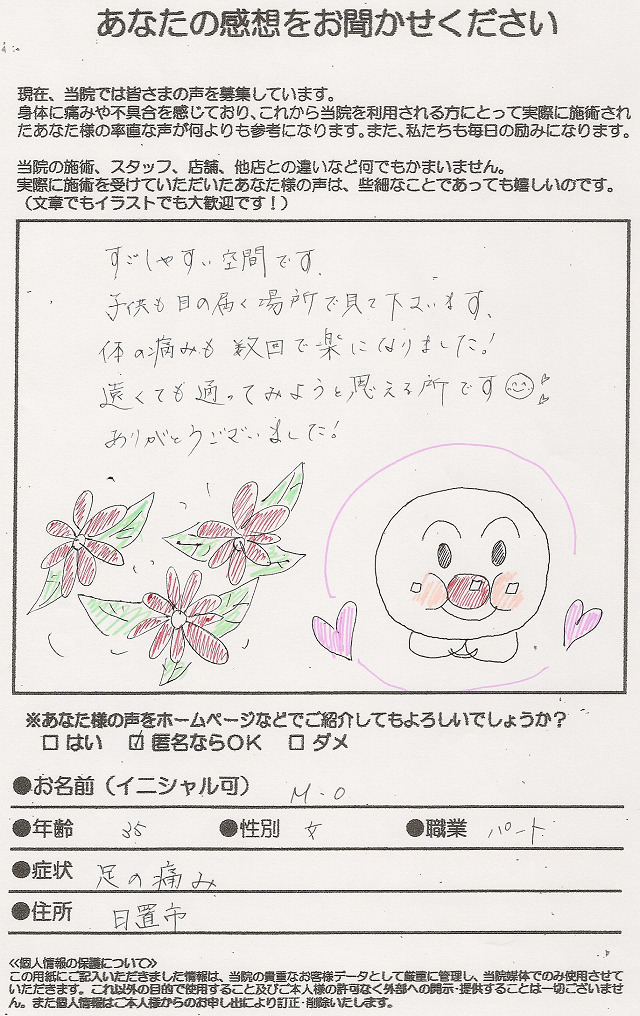 あなたの感想をお聞かせください
現在、当院では皆さまの声を募集しています。
身体に痛みや不具合を感じており、これから当院を利用される方にとって実際に施術され
たあなた様の率直な声が何よりも参考になります。また、私たちも毎日の励みになります。
当院の施術、スタッフ、店舗、他店との違いなど何でもかまいません。
実際に施術を受けていただいたあなた様の声は、些細なことであっても嬉しいのです。
(文章でもイラストでも大歓迎です!)
すごしやすい空間です。
子供も目の届く場所で見て下さいます。
体の痛みも数回で楽になりました!
遠くても通ってみようと思える所です
ありがとうございました!
※あなた様の声をホームページなどでご紹介してもよろしいでしょうか?
□ はい ☑ 匿名ならOK □ ダメ
●お名前(イニシャル可) M.O
●年齢 35 ●性別 女 ●職業 パート
●症状 足の痛み
●住所 日置市
≪個人情報の保護について≫
この用紙にご記入いただきました情報は、当院の貴重なお客様データとして厳重に管理し、当院媒体でのみ使用させて
いただきます。これ以外の目的で使用すること及びご本人様の許可なく外部への開示・提供することは一切ございませ
ん。また個人情報はご本人様からのお申し出により訂正・削除いたします。